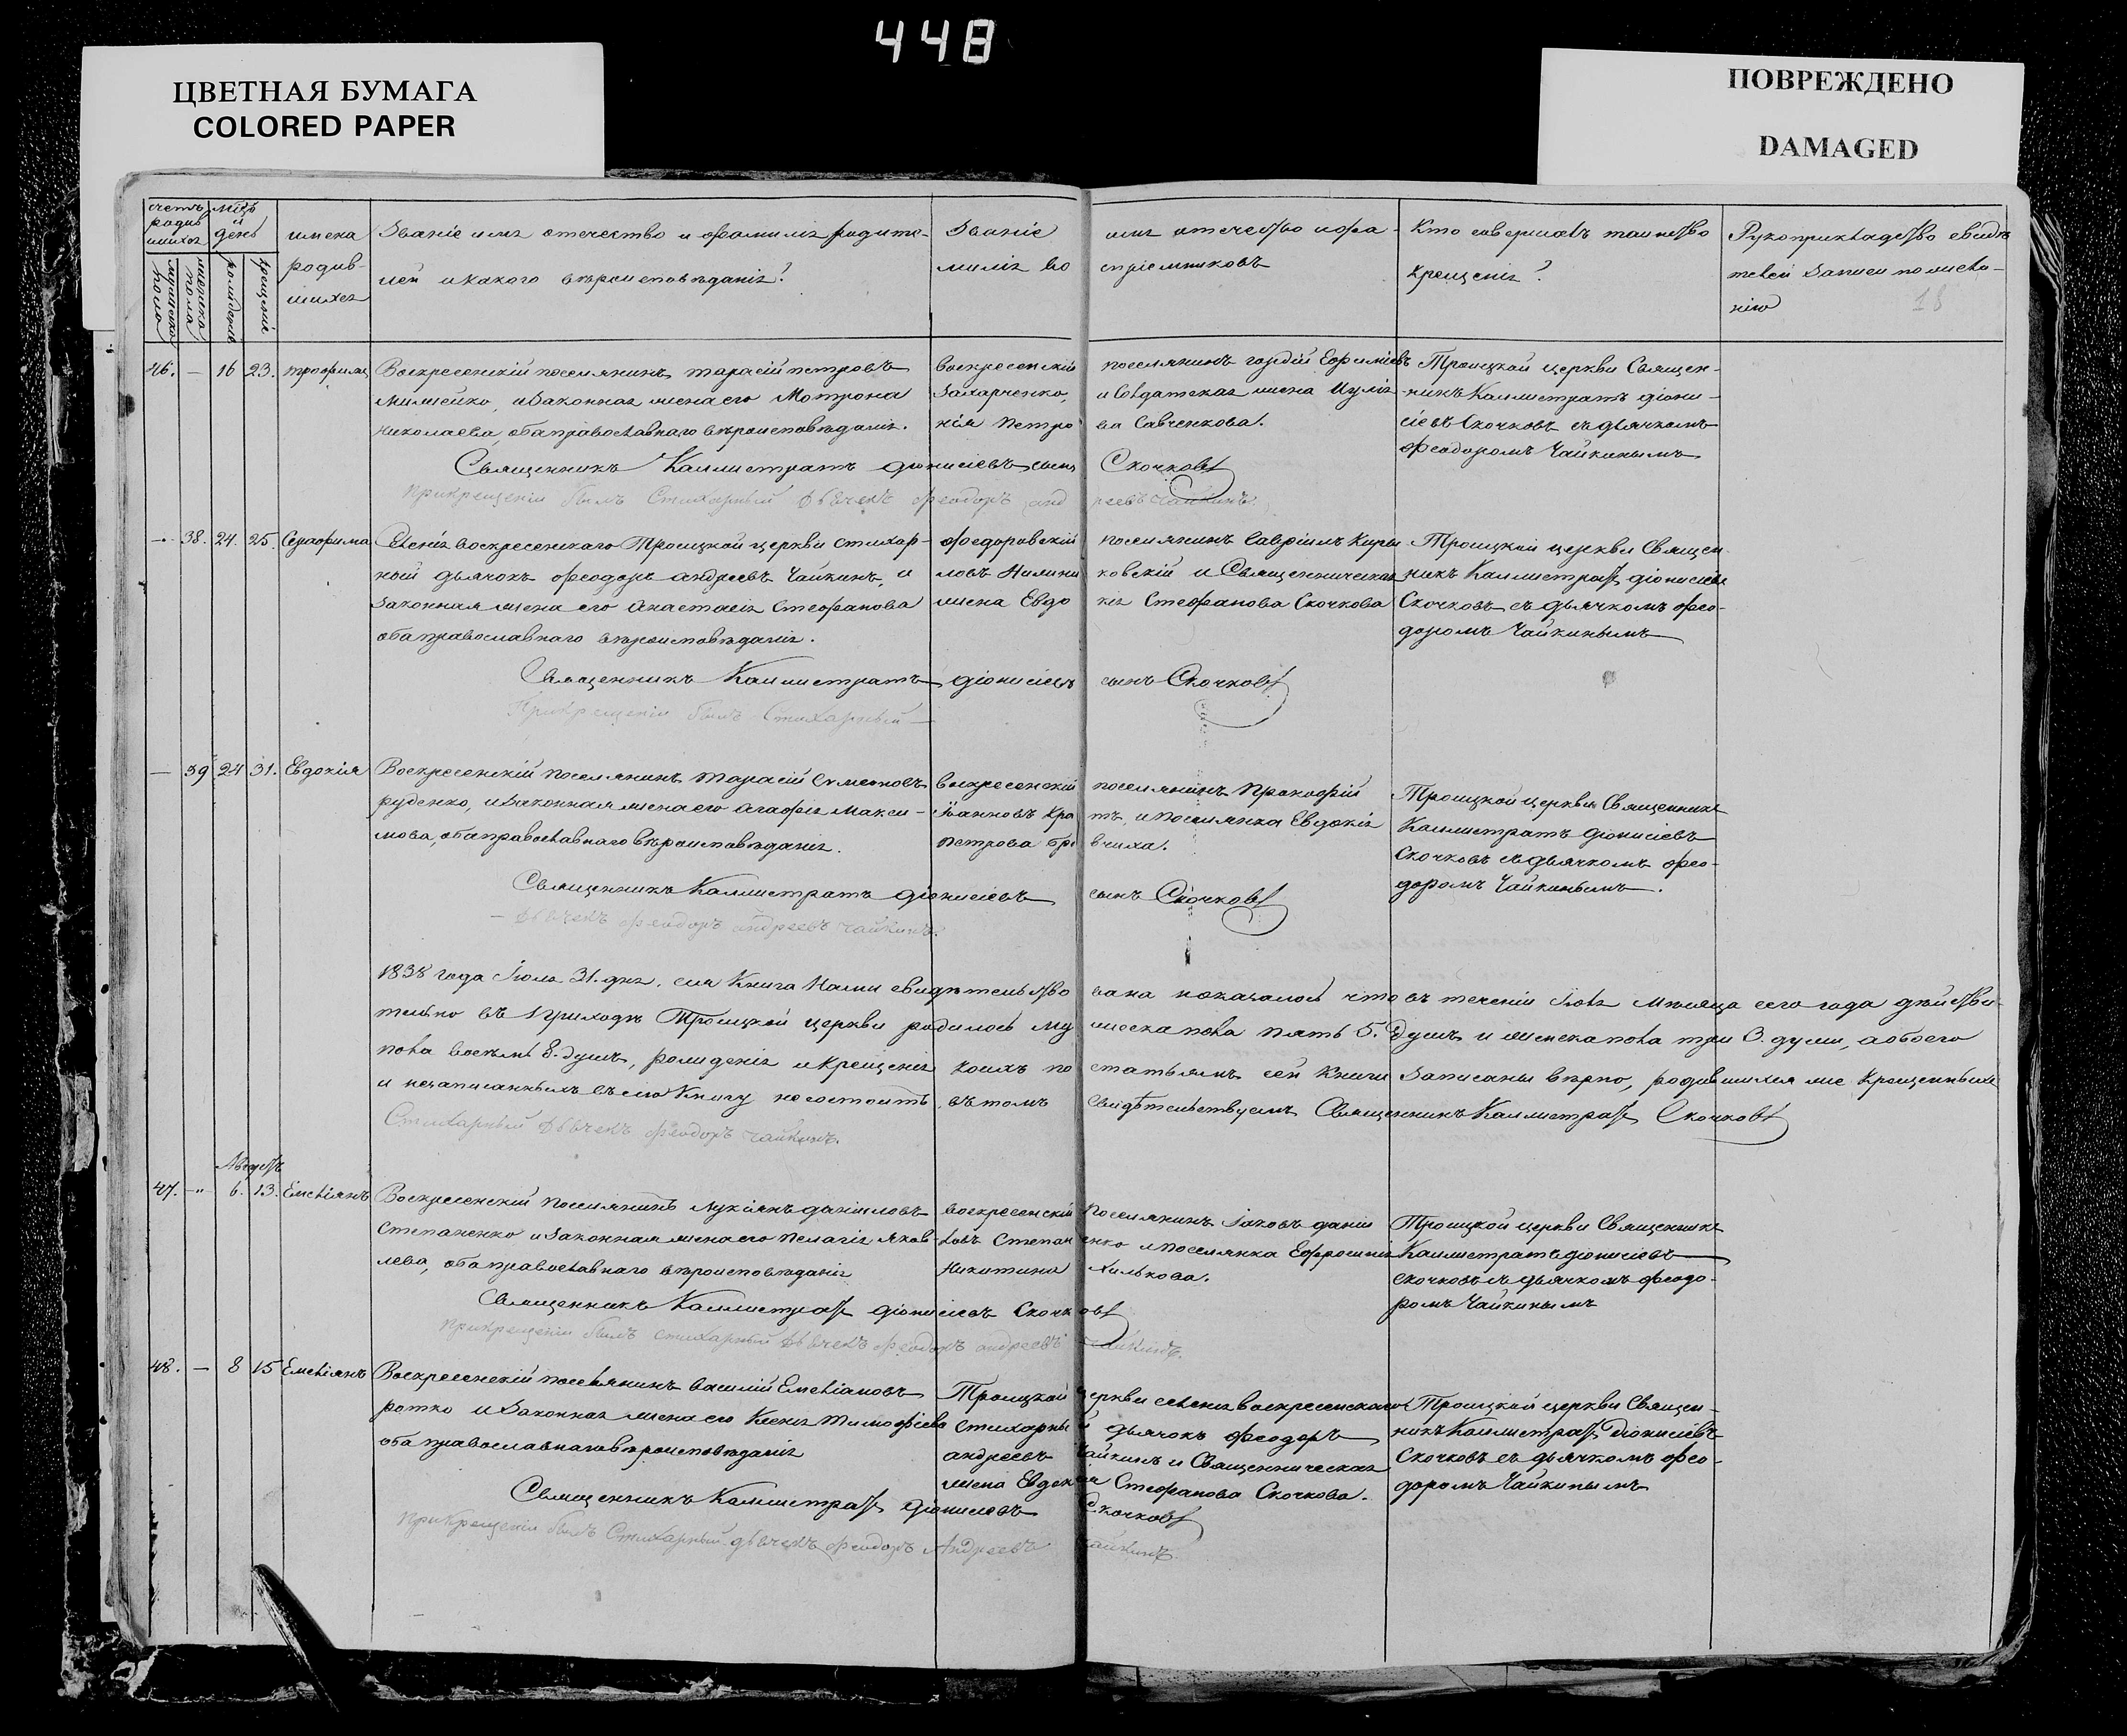 448
ЦВЕТНАЯ БУМАГА
COLORED PAPER
ПОВРЕЖДЕНО
DAMAGED
счетъ родившихся
мужеска пола
женска пола
мѣсяцъ и день
рожденія
крещенія
имена родившихся
Званіе имя отечество и фамилія родителей и какого вѣроисповѣданія?
Званіе имя отечество и фамилія воспріемниковъ
Кто совершалъ таинство крещенія?
Рукоприкладство свидѣтелей записи по желанію
18
46. — 16 23. трофимъ
Воскресенскій поселянинъ тарасій петровъ
и законная жена его Мотрона
николаева, оба православнаго вѣроисповѣданія.
воскресенскій поселянинъ гордій Ефиміевъ
Захарченко, и солдатская жена Иулія
нія петрова Савченкова.
Троицкой церкви Священ-
никъ Каллистратъ діони-
сіевъ Скочковъ съ дьячкомъ
феодоромъ Чайкинымъ
Священникъ Каллистратъ діонисіевъ сынъ Скочковъ
При крещеніи былъ Стихарный Дьячекъ феодоръ андреевъ чайкинъ.
— 38. 24. 25. Серафима
Селенія воскресенскаго Троицкой церкви стихар-
ный дьячокъ феодоръ андреевъ Чайкинъ, и
законная жена его Анастасія Стефанова
оба православнаго вѣроисповѣданія.
федоровскій поселянинъ Гавріилъ Кири-
ловъ и Священническая
жена Евдокія Стефанова Скочкова
Троицкой церкви Священ-
никъ Каллистратъ діонисіевъ
Скочковъ съ дьячкомъ фео-
доромъ Чайкинымъ
Священникъ Каллистратъ діонисіевъ сынъ Скочковъ
При крещеніи былъ Стихарный —
— 39 24 31. Евдокія
Воскресенскій поселянинъ тарасій симеоновъ
руденко, и законная жена его агафія Макси-
мова, оба православнаго вѣроисповѣданія.
воскресенскій поселянинъ Прокофій
и поселянка Евдокія
петрова
Троицкой церкви Священникъ
Каллистратъ діонисіевъ
Скочковъ съ дьячкомъ фео-
доромъ Чайкинымъ.
Священникъ Каллистратъ діонисіевъ сынъ Скочковъ
— Дьячекъ феодоръ андреевъ чайкинъ.
1838 года Іюля 31. дня. сія Книга Нами свидѣтельствована показалось что въ теченіи Іюля мѣсяца сего года дѣйстви-
тельно въ приходѣ Троицкой церкви родилось мужеска пола пять 5. душъ и женска пола три 3. души, а обоего
пола восемь 8. душъ, рожденія и крещенія коихъ по статьямъ сей книги записаны вѣрно, родившихся же крещенныхъ
и незаписанныхъ въ сію Книгу не состоитъ, въ томъ свидѣтельствуемъ Священникъ Каллистратъ Скочковъ
Стихарный Дьячекъ феодоръ чайкинъ.
Августъ
47. — 6. 13. Емельянъ
Воскресенскій поселянинъ Лукіянъ даніиловъ
Степаненко и законная жена его пелагія яков-
лева, оба православнаго вѣроисповѣданія
воскресенскій поселянинъ Іаковъ даніи-
ловъ Степаненко и поселянка Ефросинія
Никитина Хилькова.
Троицкой церкви Священникъ
Каллистратъ діонисіевъ
скочковъ съ дьячкомъ феодо-
ромъ Чайкинымъ
Священникъ Каллистратъ діонисіевъ Скочковъ
При крещеніи былъ стихарный Дьячекъ феодоръ андреевъ чайкинъ.
48. — 8 15 Емельянъ
Воскресенскій поселянинъ василій Емельяновъ
ротко и законная жена его Ксенія тимофіева
оба православнаго вѣроисповѣданія
Троицкой церкви селенія воскресенскаго
стихарный дьячокъ феодоръ
андреевъ Чайкинъ и Священническая
жена Евдокія Стефанова Скочкова.
Троицкой церкви Священ-
никъ Каллистратъ Діонисіевъ
Скочковъ съ дьячкомъ фео-
доромъ Чайкинымъ
Священникъ Каллистратъ діонисіевъ Скочковъ
При крещеніи былъ Стихарный дьячекъ феодоръ Андреевъ чайкинъ.